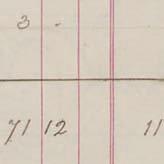 3 .
71 12 11